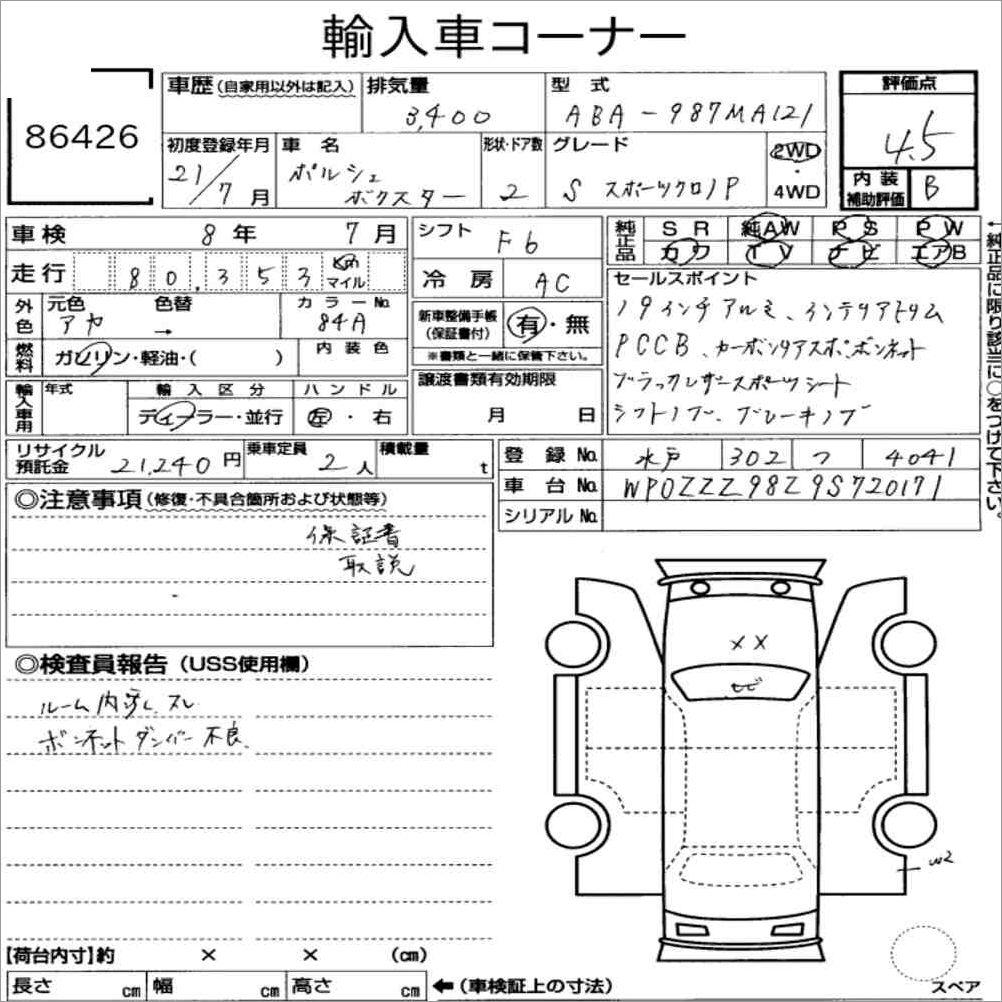 輸入車コーナー
86426
車歴(自家用以外は記入) 排気量 3,400 型式 ABA-987MA121 評価点 4.5
初度登録年月 21/7月 車名 ポルシェ ボクスター 形状・ドア数 2 グレード S スポーツクロノP 2WD・4WD 内装補助評価 B
車検 8年 7月 シフト F6 純正品 SR 純AW PS PW
カワ TV ナビ エアB
走行 80,353 Km マイル 冷房 AC
外色 元色 アカ 色替 → カラーNo. 84A
新車整備手帳(保証書付) 有・無
※書類と一緒に保管下さい。
燃料 ガソリン・軽油・( ) 内装色
輸入車用 年式 輸入区分 ディーラー・並行 ハンドル 左・右
譲渡書類有効期限 月 日
セールスポイント
19インチアルミ、インテリアトリム
PCCB、カーボンリアスポ、ボンネット
ブラックレザースポーツシート
シフトノブ、ブレーキノブ
←純正品に限り該当に○をつけて下さい。
リサイクル預託金 21,240円 乗車定員 2人 積載量 t
登録No. 水戸 302 つ 4041
車台No. WP0ZZZ98Z9S720171
シリアルNo.
◎注意事項(修復・不具合箇所および状態等)
保証書
取説
◎検査員報告(USS使用欄)
ルーム内張、スレ
ボンネットダンパー不良
XX
トビ
W2
【荷台内寸】約 × × (cm)
長さ cm 幅 cm 高さ cm ←(車検証上の寸法)
スペア